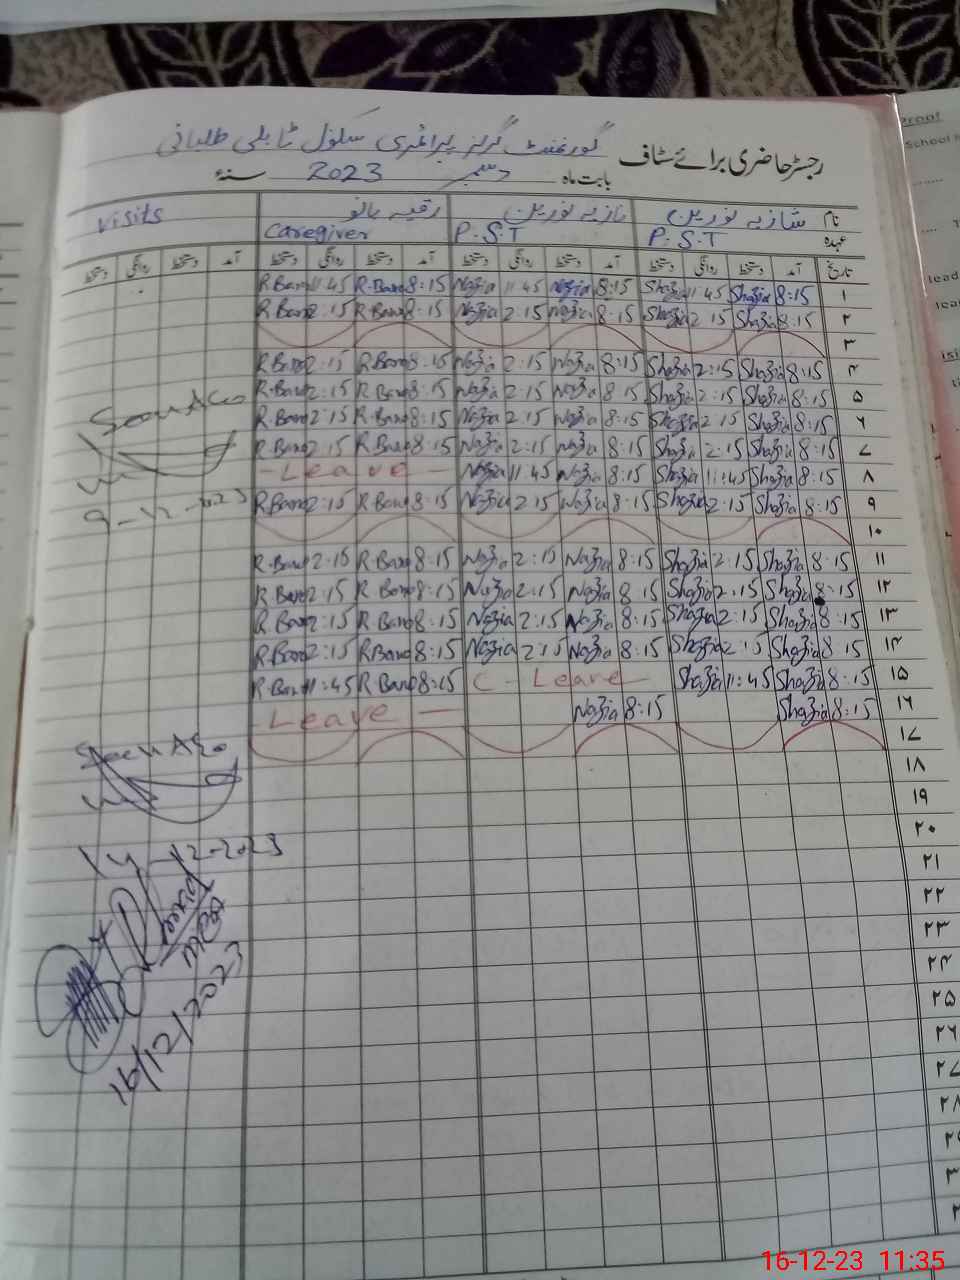 گورنمنٹ گرلز پرائمری سکول ٹاہلی طلبانی
رجسٹر حاضری برائے سٹاف
بابت ماہ دسمبر 2023 سنہ
نام شازیہ نورین نازیہ نورین رقیہ بانو Visits
عہدہ P.S.T P.S.T Caregiver
تاریخ آمد دستخط روانگی دستخط آمد دستخط روانگی دستخط آمد دستخط روانگی دستخط آمد دستخط روانگی دستخط
۱ 8:15 Shazia 11:45 Shazia 8:15 Nazia 11:45 Nazia 8:15 R.Bano 11:45 R.Bano
۲ 8:15 Shazia 2:15 Shazia 8:15 Nazia 2:15 Nazia 8:15 R.Bano 2:15 R.Bano
۳
۴ 8:15 Shazia 2:15 Shazia 8:15 Nazia 2:15 Nazia 8:15 R.Bano 2:15 R.Bano
۵ 8:15 Shazia 2:15 Shazia 8:15 Nazia 2:15 Nazia 8:15 R.Bano 2:15 R.Bano
۶ 8:15 Shazia 2:15 Shazia 8:15 Nazia 2:15 Nazia 8:15 R.Bano 2:15 R.Bano
۷ 8:15 Shazia 2:15 Shazia 8:15 Nazia 2:15 Nazia 8:15 R.Bano 2:15 R.Bano
۸ 8:15 Shazia 11:45 Shazia 8:15 Nazia 11:45 Nazia - Leave -
۹ 8:15 Shazia 2:15 Shazia 8:15 Nazia 2:15 Nazia 8:15 R.Bano 2:15 R.Bano
9-12-2023
۱۰
۱۱ 8:15 Shazia 2:15 Shazia 8:15 Nazia 2:15 Nazia 8:15 R.Bano 2:15 R.Bano
۱۲ 8:15 Shazia 2:15 Shazia 8:15 Nazia 2:15 Nazia 8:15 R.Bano 2:15 R.Bano
۱۳ 8:15 Shazia 2:15 Shazia 8:15 Nazia 2:15 Nazia 8:15 R.Bano 2:15 R.Bano
۱۴ 8:15 Shazia 2:15 Shazia 8:15 Nazia 2:15 Nazia 8:15 R.Bano 2:15 R.Bano
۱۵ 8:15 Shazia 11:45 Shazia C - Leave - 8:15 R.Bano 11:45 R.Bano
۱۶ 8:15 Shazia 8:15 Nazia - Leave -
۱۷
۱۸
۱۹
۲۰
14-12-2023
۲۱
۲۲
۲۳
۲۴
MEA
۲۵
16/12/2023
۲۶
۲۷
۲۸
16-12-23 11:35